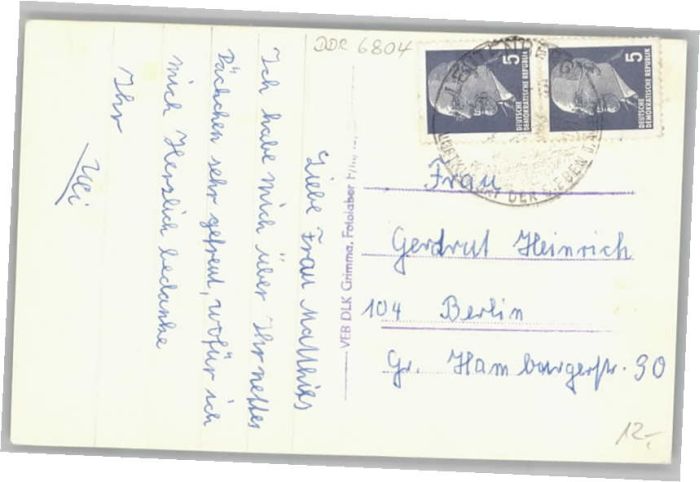 DDR 6804
Liebe Frau Matthies
Ich habe mich über Ihr nettes
Päckchen sehr gefreut, wofür ich
mich Herzlich bedanke
Ihr
Uli
VEB DLK Grimma, Fotolabor
5
DEUTSCHE
DEMOKRATISCHE REPUBLIK
5
DEUTSCHE
DEMOKRATISCHE REPUBLIK
DER SIEBEN
Frau
Gerdrut Heinrich
104 Berlin
Gr. Hamburgerstr. 30
12,-